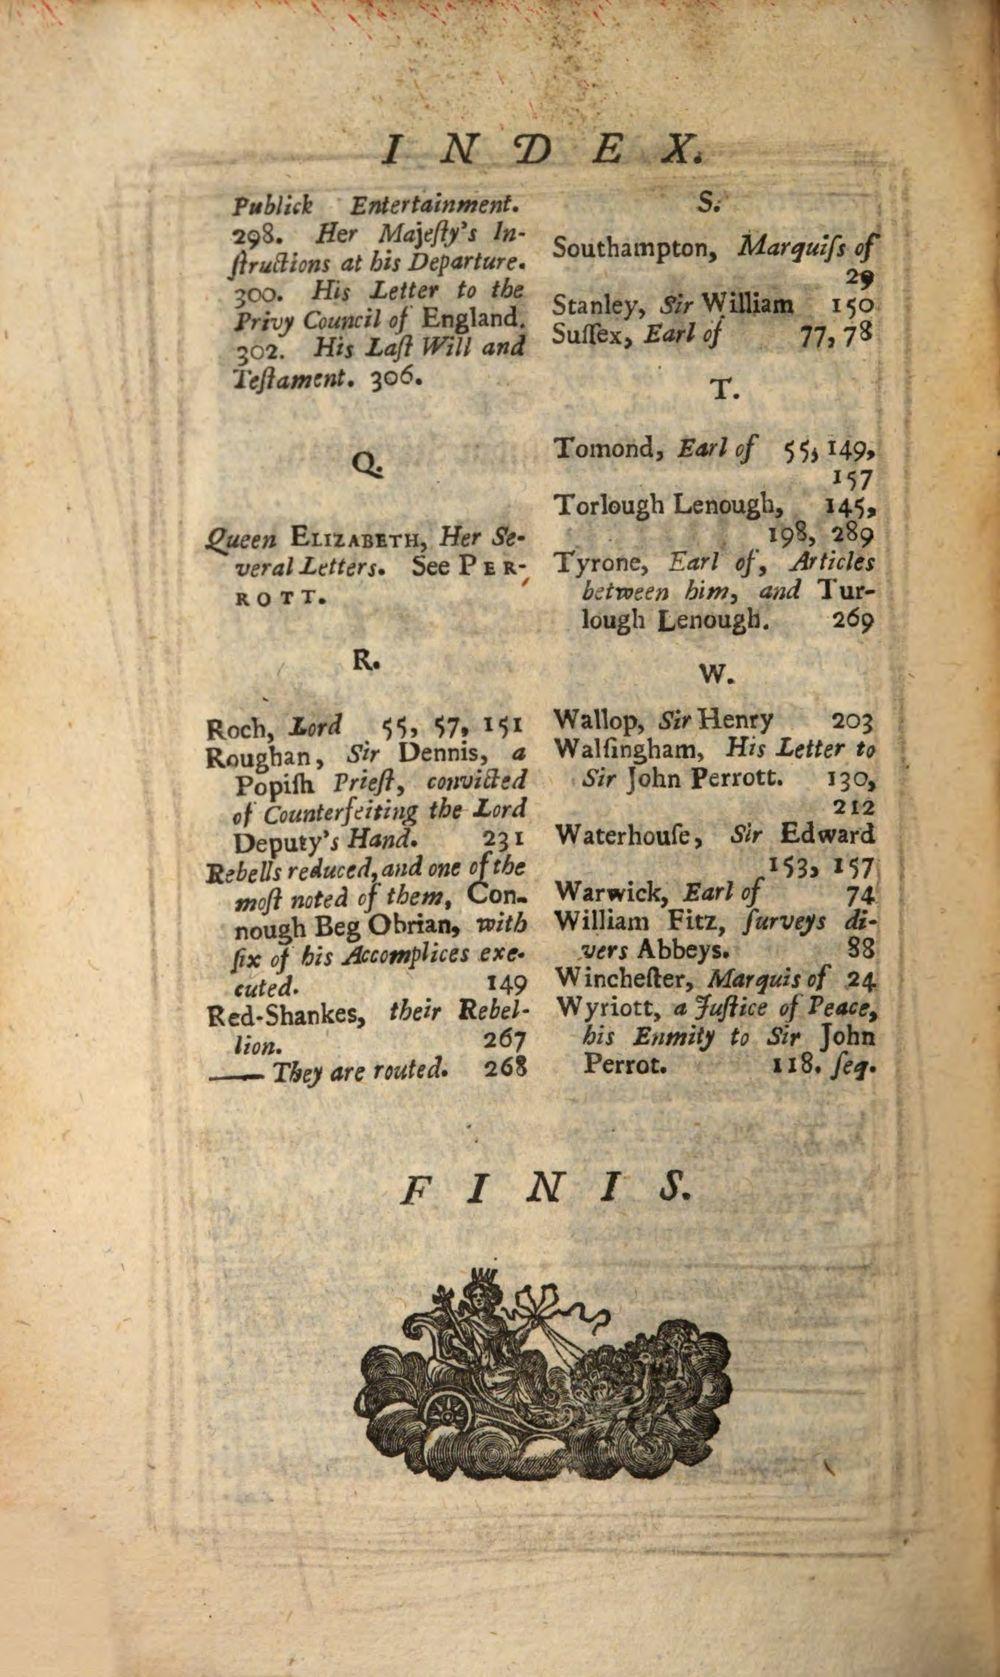 INDEX.
Publick Entertainment.
298. Her Majeſty's In-
ſtructions at his Departure.
300. His Letter to the
Privy Council of England.
302. His Laſt Will and
Teſtament. 306.
Q.
Queen ELIZABETH, Her Se-
veral Letters. See PER-
ROTT.
R.
Roch, Lord 55, 57, 151
Roughan, Sir Dennis, a
Popiſh Prieſt, convicted
of Counterfeiting the Lord
Deputy's Hand. 231
Rebells reduced, and one of the
moſt noted of them, Con-
nough Beg Obrian, with
ſix of his Accomplices exe-
cuted. 149
Red-Shankes, their Rebel-
lion. 267
—— They are routed. 268
S.
Southampton, Marquiſs of
29
Stanley, Sir William 150
Suſſex, Earl of 77, 78
T.
Tomond, Earl of 55, 149,
157
Torlough Lenough, 145,
198, 289
Tyrone, Earl of, Articles
between him, and Tur-
lough Lenough. 269
W.
Wallop, Sir Henry 203
Walſingham, His Letter to
Sir John Perrott. 130,
212
Waterhouſe, Sir Edward
153, 157
Warwick, Earl of 74
William Fitz, ſurveys di-
vers Abbeys. 88
Wincheſter, Marquis of 24
Wyriott, a Juſtice of Peace,
his Enmity to Sir John
Perrot. 118. ſeq.
FINIS.